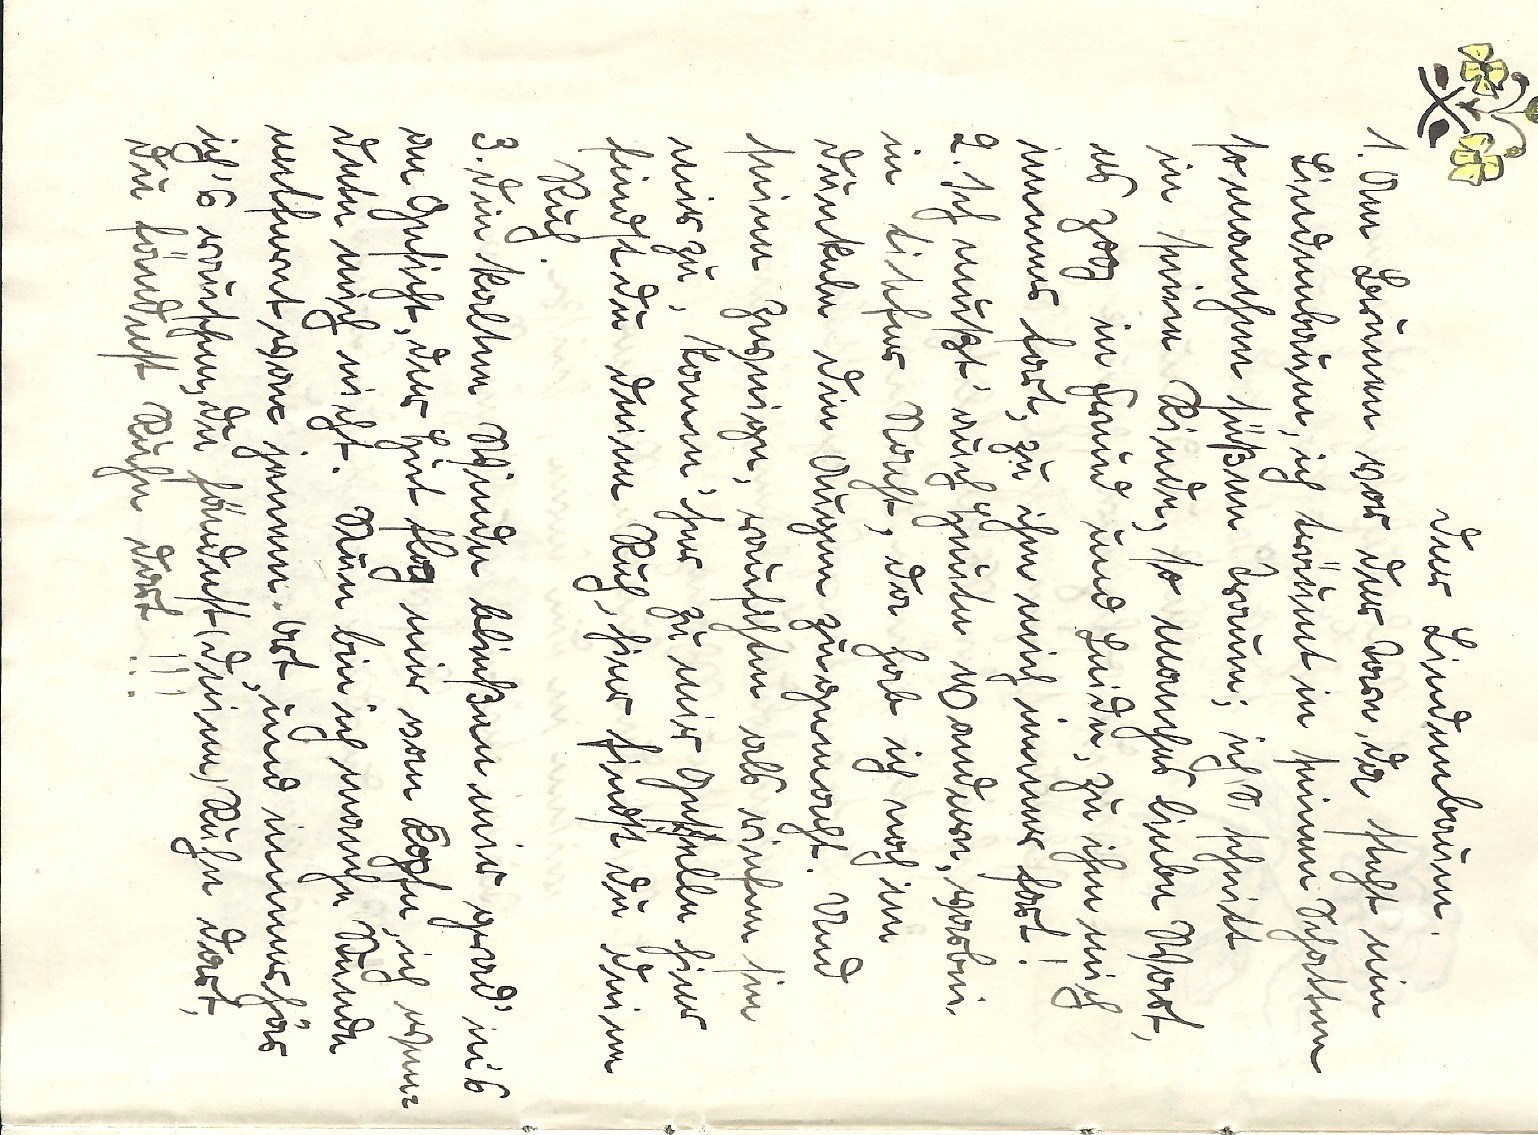 Der Lindenbaum.
1. Am Brunnen vor dem Tore, da steht ein
Lindenbaum, ich träumt in seinen Schatten
so manchen süßen Traum; ich schnitt
in seine Rinde, so manches liebe Wort,
es zog in Freud und Leide, zu ihm mich
immer fort, zu ihm mich immer fort!
2. Ich mußt' auch heute wandern, vorbei
in tiefer Nacht, da hab ich noch im
dunkeln die Augen zugemacht. Und
seine Zweige, rauschten als riefen sie
mir zu, komm' her zu mir Geselle hier
findst du deine Ruh, hier findst du deine
Ruh.
3. Die kalten Winde bließen mir grad' in's
an Gesicht, der Hut flog mir vom Kopfe, ich wen=
dete mich nicht. Nun bin ich manche Stunde
entfernt von jenem Ort, und immer hör
ich's rauschen, du fändest (deine) Ruhe dort,
du fändest Ruhe dort!!!